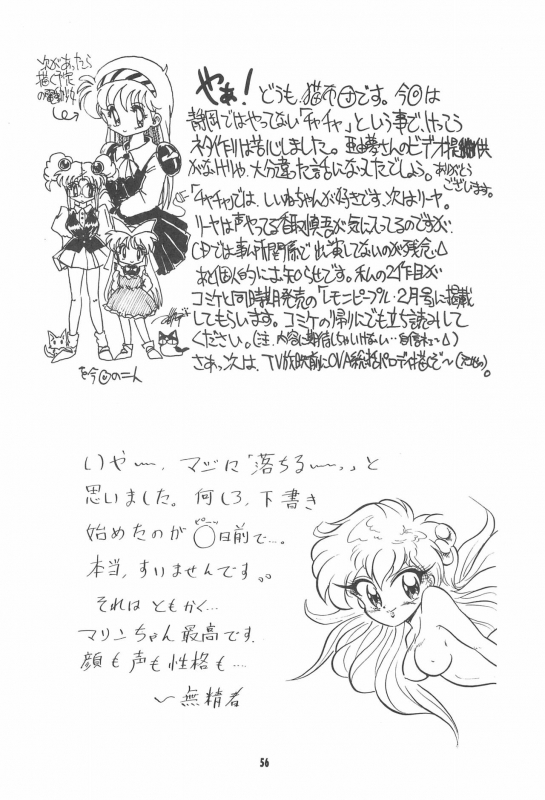 次があったら
描く予定
の
やぁ! どうも、猫布団です。今回は
静岡ではやってない「チャチャ」という事で、けっこう
ネタ作りは苦心しました。亜夢さんのビデオ提供
がなけりゃ、大分違った話になってたでしょう。ありがとう
ございます。
「チャチャ」では、しいねちゃんが好きです。次はリーヤ。
リーヤは声やってる香取慎吾が気に入ってるのですが、
CDでは事ム所関係で出演してないのが残念。
あと個人的にお知らせです。私の2作目が
コミケと同時期発売の「レモンピープル・2月号」に掲載
してもらいます。コミケの帰りにでも立ち読みして
ください。(注、内容に期待しちゃいけない…
さぁっ次は、TV放映前にOVA総括パロディ描くぞ〜
を今回の二人
いやー、マジに「落ちるー。」と
思いました。何しろ、下書き
始めたのがピー〇日前で…。
本当、すいませんです。。
それはともかく…
マリンちゃん最高です。
顔も声も性格も…
〜無精者
56